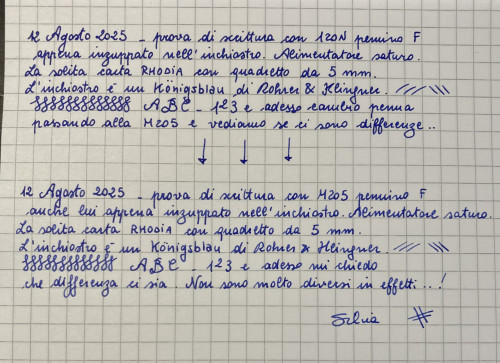 12 Agosto 2025 - prova di scrittura con 120N pennino F
appena inzuppato nell'inchiostro. Alimentatore saturo.
La solita carta RHODIA con quadretto da 5 mm.
L'inchiostro è un Königsblau di Rohrer & Klingner.
§§§§§§§§§§§§§ ABC - 123 e adesso cambio penna
passando alla M205 e vediamo se ci sono differenze..
↓ ↓ ↓
12 Agosto 2025 - prova di scrittura con M205 pennino F
anche lui appena inzuppato nell'inchiostro. Alimentatore saturo.
La solita carta RHODIA con quadretto da 5 mm.
L'inchiostro è un Königsblau di Rohrer & Klingner.
§§§§§§§§§§§§§ ABC - 123 e adesso mi chiedo
che differenza ci sia. Non sono molto diversi in effetti...!
Silvia #